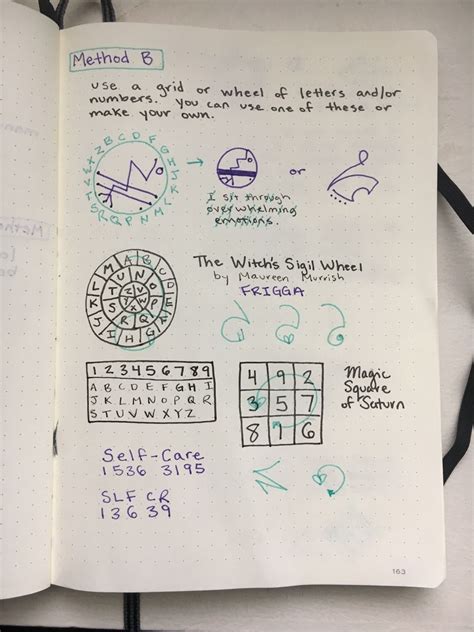 Method B
use a grid or wheel of letters and/or
numbers. you can use one of these or
make your own.
Z B C D F G H J K L M N P Q R S T V
or
I sit through
overwhelming
emotions.
The Witch's Sigil Wheel
by Maureen Murrish
FRIGGA
A B C D E F G H I J K L M
N O P Q R S T U
V W X Y Z
1 2 3 4 5 6 7 8 9
A B C D E F G H I
J K L M N O P Q R
S T U V W X Y Z
4 9 2
3 5 7
8 1 6
Magic
Square
of Saturn
Self-Care
1536 3195
SLF CR
136 39
163